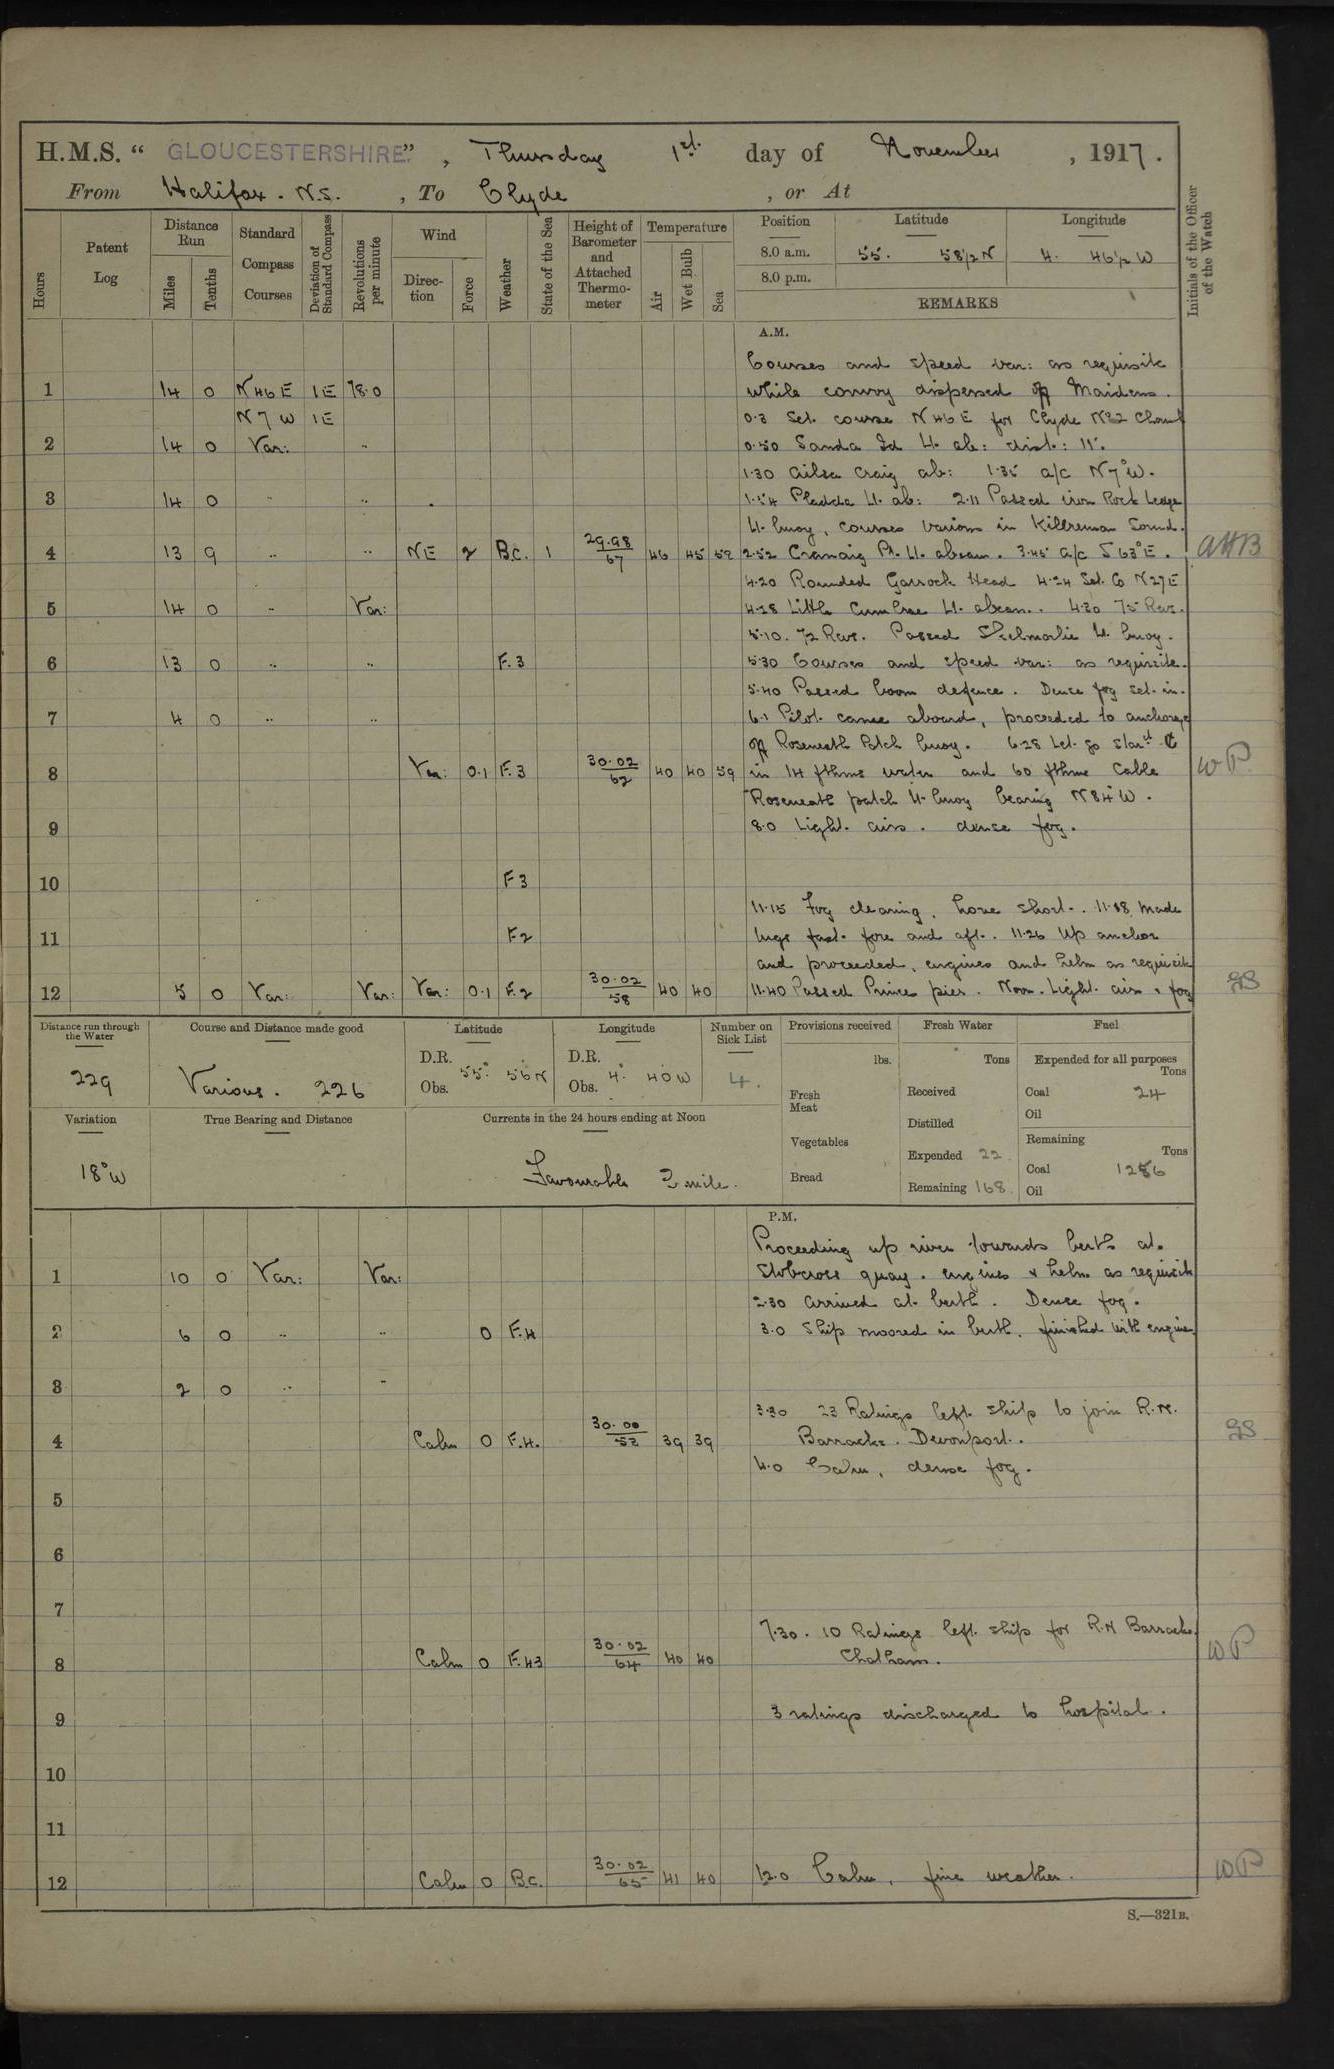 H.M.S. “ GLOUCESTERSHIRE ” , Thursday 1st day of November , 1917 .
From Halifax . N.S. , To Clyde , or At
Hours
Patent Log
Distance Run
Miles
Tenths
Standard Compass Courses
Deviation of Standard Compass
Revolutions per minute
Wind
Direction
Force
Weather
State of the Sea
Height of Barometer and Attached Thermometer
Temperature
Air
Wet Bulb
Sea
Position
Latitude
Longitude
8.0 a.m. 55. 58 1/2 N 4. 46 1/2 W
8.0 p.m.
REMARKS
Initials of the Officer of the Watch
A.M.
Courses and speed var: as requisite
1 14 0 N 46 E 1E 78.0 while convoy dispersed off Maidens.
N 7 W 1E 0.3 Set course N 46 E for Clyde No 2
2 14 0 Var: .. 0.50 Sanda Id Lt. ab: dist: 11'.
1.30 Ailsa Craig ab: 1.35 a/c N 7° W.
3 14 0 .. .. 1.54 Pladda Lt. ab: 2.11 Passed Iron Rock Ledge
Lt. buoy, courses various in Sound.
4 13 9 .. .. NE 2 B.C. 1 29.98 67 46 45 52 2.52 Pt. Lt. abeam. 3.45 a/c S 63° E. AHB
4.20 Rounded Garroch Head 4.24 Set Co N 27 E
5 14 0 .. Var: 4.28 Little Cumbrae Lt. abeam. 4.30 75 Revs.
5.10. 72 Revs. Passed Skelmorlie Lt. buoy.
6 13 0 .. .. F.3 5.30 Courses and speed var: as requisite.
5.40 Passed boom defence. Dense fog set in.
7 4 0 .. .. 6.1 Pilot came aboard, proceeded to anchorage
off Roseneath Patch buoy. 6.28 Let go starbd ⚓
8 Var: 0.1 F.3 30.02 62 40 40 59 in 14 fthms water and 60 fthms cable W P.
Roseneath patch Lt. buoy bearing N 84° W.
9 8.0 Light airs. dense fog.
10 F 3
11.15 Fog clearing, hove short. 11.18 made
11 F.2 tugs fast fore and aft. 11.26 Up anchor
and proceeded, engines and helm as requisite
12 5 0 Var: Var: Var: 0.1 F.2 30.02 58 40 40 11.40 Passed Princes pier. Noon. Light airs & fog
Distance run through the Water
229
Course and Distance made good
Various. 226
Latitude
D.R. 55° 56 N
Obs.
Longitude
D.R. 4° 40 W
Obs.
Number on Sick List
4.
Provisions received
lbs.
Fresh Meat
Vegetables
Bread
Fresh Water
Tons
Received
Distilled
Expended 22
Remaining 168
Fuel
Expended for all purposes
Tons
Coal 24
Oil
Remaining
Tons
Coal 1256
Oil
Variation
18° W
True Bearing and Distance
Currents in the 24 hours ending at Noon
Favourable mile.
P.M.
Proceeding up river towards berth at
1 10 0 Var: Var: Stobcross quay. engines & helm as requisite
2.30 arrived at berth. Dense fog.
2 6 0 .. .. 0 F.4 3.0 Ship moored in berth. finished with engines
3 2 0 .. ..
3.30 23 Ratings left ship to join R.N.
4 Calm 0 F.4. 30.00 52 39 39 Barracks. Devonport.
4.0 Calm, dense fog.
5
6
7
7.30. 10 Ratings left ship for R.N Barracks,
8 Calm 0 F.43 30.02 64 40 40 Chatham. W P
9 3 ratings discharged to hospital.
10
11
12 Calm 0 B.C. 30.02 65 41 40 12.0 Calm, fine weather. W P
S.—321B.